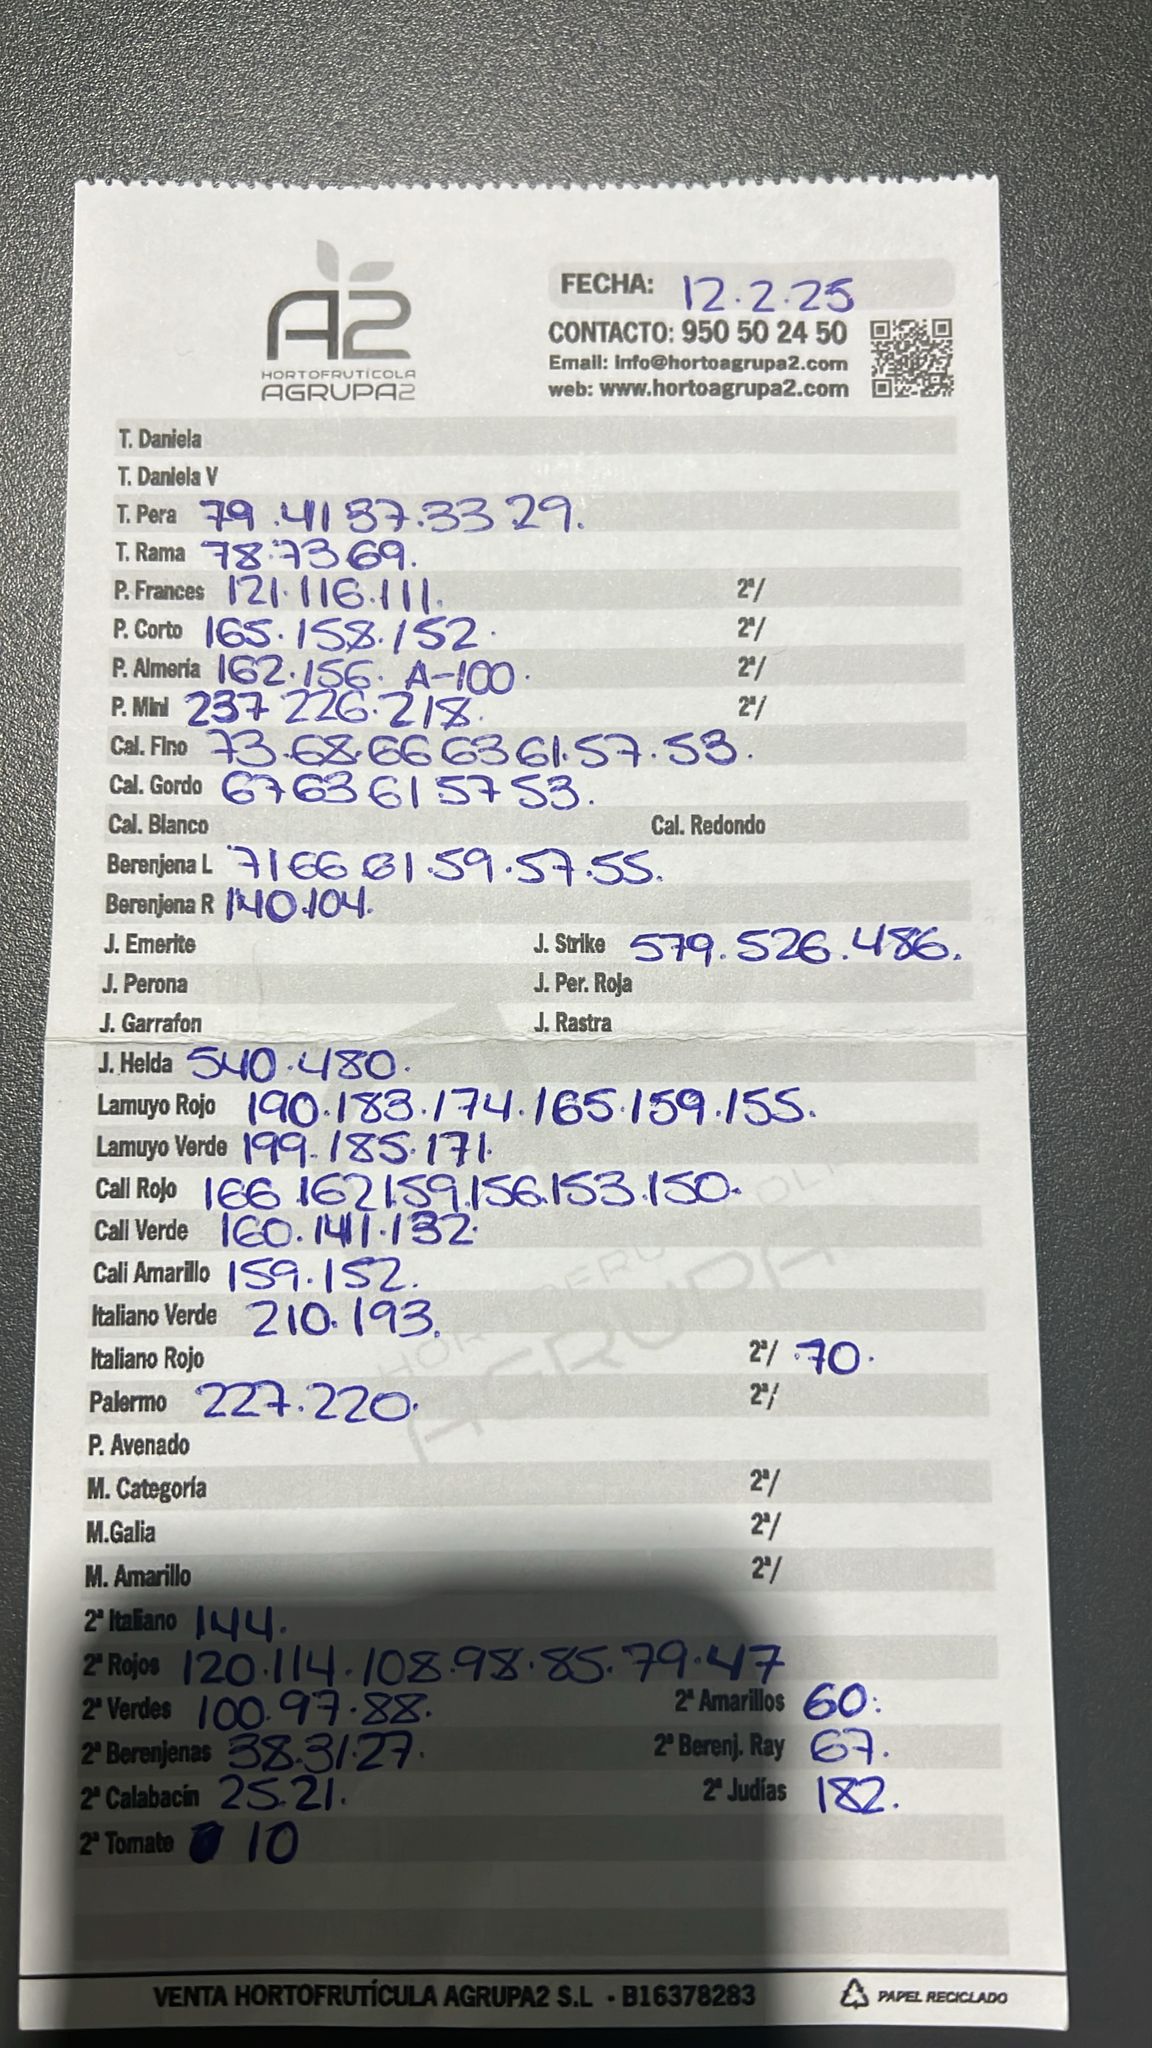 A2
HORTOFRUTÍCOLA
AGRUPA2
FECHA: 12.2.25
CONTACTO: 950 50 24 50
Email: info@hortoagrupa2.com
web: www.hortoagrupa2.com
T. Daniela
T. Daniela V
T. Pera 79.41 37.33 29.
T. Rama 78.73 69.
P. Frances 121.116.111. 2ª/
P. Corto 165.158.152. 2ª/
P. Almería 162.156. A-100. 2ª/
P. Mini 237 226.218. 2ª/
Cal. Fino 73.68.66 63 61.57.53.
Cal. Gordo 67 63 61 57 53.
Cal. Blanco Cal. Redondo
Berenjena L 71 66 61.59.57.55.
Berenjena R 140.104.
J. Emerite J. Strike 579.526.486.
J. Perona J. Per. Roja
J. Garrafon J. Rastra
J. Helda 540.480.
Lamuyo Rojo 190.183.174.165.159.155.
Lamuyo Verde 199.185.171.
Cali Rojo 166 162 159.156.153.150.
Cali Verde 160.141.132.
Cali Amarillo 159.152.
Italiano Verde 210.193.
Italiano Rojo 2ª/ .70.
Palermo 227.220. 2ª/
P. Avenado
M. Categoría 2ª/
M.Galia 2ª/
M. Amarillo 2ª/
2ª Italiano 144.
2ª Rojos 120.114.108.98.85.79.47
2ª Verdes 100.97.88. 2ª Amarillos 60.
2ª Berenjenas 38.31.27. 2ª Berenj. Ray 67.
2ª Calabacín 25.21. 2ª Judías 182.
2ª Tomate 10
VENTA HORTOFRUTÍCULA AGRUPA2 S.L - B16378283 PAPEL RECICLADO